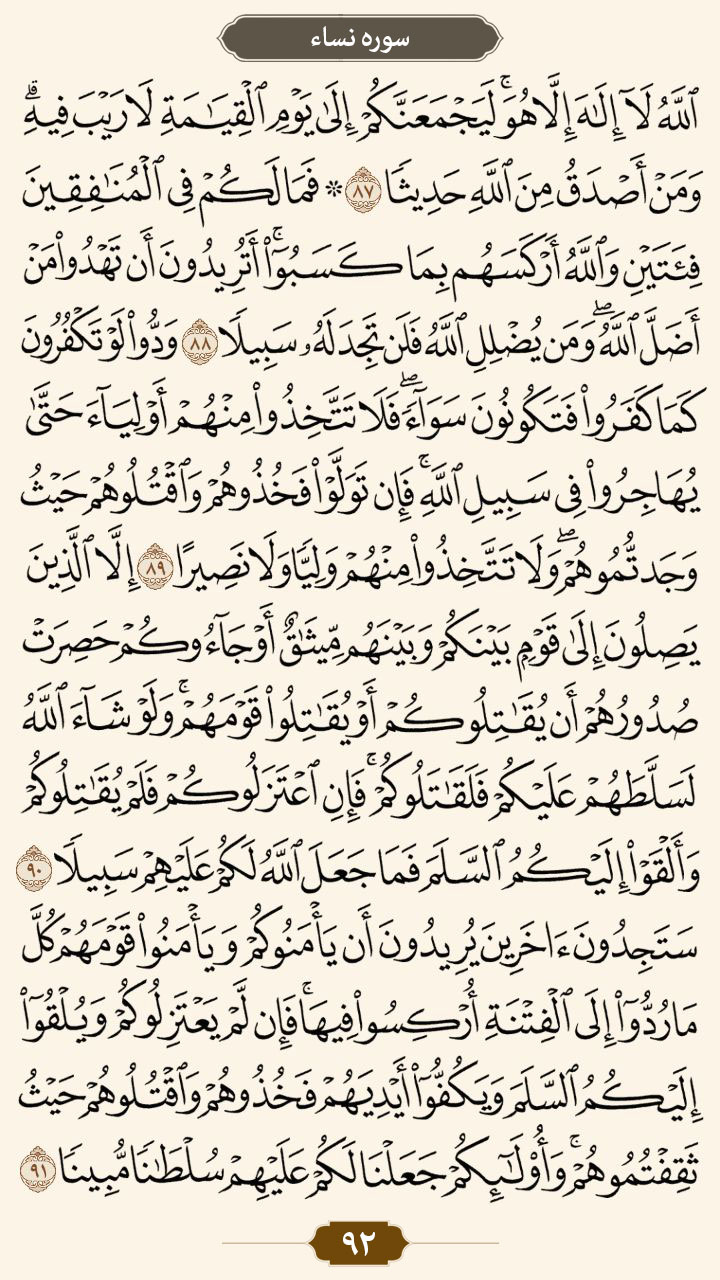 سوره نساء
ٱللَّهُ لَآ إِلَٰهَ إِلَّا هُوَۚ لَيَجْمَعَنَّكُمْ إِلَىٰ يَوْمِ ٱلْقِيَٰمَةِ لَا رَيْبَ فِيهِۗ
وَمَنْ أَصْدَقُ مِنَ ٱللَّهِ حَدِيثًا ٨٧ * فَمَا لَكُمْ فِى ٱلْمُنَٰفِقِينَ
فِئَتَيْنِ وَٱللَّهُ أَرْكَسَهُم بِمَا كَسَبُوٓا۟ۚ أَتُرِيدُونَ أَن تَهْدُوا۟ مَنْ
أَضَلَّ ٱللَّهُۖ وَمَن يُضْلِلِ ٱللَّهُ فَلَن تَجِدَ لَهُۥ سَبِيلًا ٨٨ وَدُّوا۟ لَوْ تَكْفُرُونَ
كَمَا كَفَرُوا۟ فَتَكُونُونَ سَوَآءًۖ فَلَا تَتَّخِذُوا۟ مِنْهُمْ أَوْلِيَآءَ حَتَّىٰ
يُهَاجِرُوا۟ فِى سَبِيلِ ٱللَّهِۚ فَإِن تَوَلَّوْا۟ فَخُذُوهُمْ وَٱقْتُلُوهُمْ حَيْثُ
وَجَدتُّمُوهُمْۖ وَلَا تَتَّخِذُوا۟ مِنْهُمْ وَلِيًّا وَلَا نَصِيرًا ٨٩ إِلَّا ٱلَّذِينَ
يَصِلُونَ إِلَىٰ قَوْمٍۭ بَيْنَكُمْ وَبَيْنَهُم مِّيثَٰقٌ أَوْ جَآءُوكُمْ حَصِرَتْ
صُدُورُهُمْ أَن يُقَٰتِلُوكُمْ أَوْ يُقَٰتِلُوا۟ قَوْمَهُمْۚ وَلَوْ شَآءَ ٱللَّهُ
لَسَلَّطَهُمْ عَلَيْكُمْ فَلَقَٰتَلُوكُمْۚ فَإِنِ ٱعْتَزَلُوكُمْ فَلَمْ يُقَٰتِلُوكُمْ
وَأَلْقَوْا۟ إِلَيْكُمُ ٱلسَّلَمَ فَمَا جَعَلَ ٱللَّهُ لَكُمْ عَلَيْهِمْ سَبِيلًا ٩٠
سَتَجِدُونَ ءَاخَرِينَ يُرِيدُونَ أَن يَأْمَنُوكُمْ وَيَأْمَنُوا۟ قَوْمَهُمْ كُلَّ
مَا رُدُّوٓا۟ إِلَى ٱلْفِتْنَةِ أُرْكِسُوا۟ فِيهَاۚ فَإِن لَّمْ يَعْتَزِلُوكُمْ وَيُلْقُوٓا۟
إِلَيْكُمُ ٱلسَّلَمَ وَيَكُفُّوٓا۟ أَيْدِيَهُمْ فَخُذُوهُمْ وَٱقْتُلُوهُمْ حَيْثُ
ثَقِفْتُمُوهُمْۚ وَأُو۟لَٰٓئِكُمْ جَعَلْنَا لَكُمْ عَلَيْهِمْ سُلْطَٰنًا مُّبِينًا ٩١
٩٢